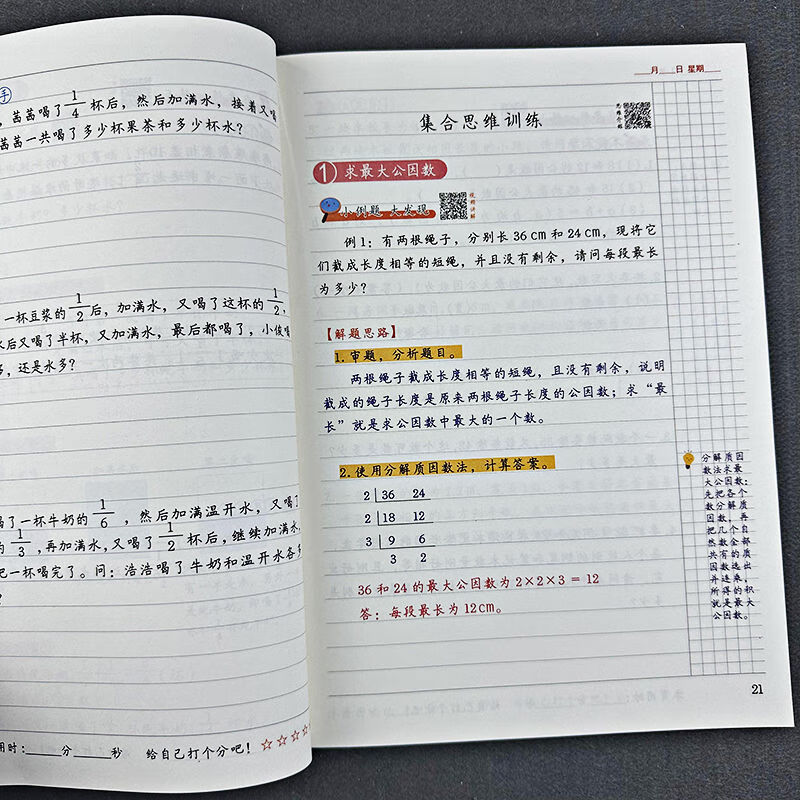 手
，茜茜喝了1/4杯后，然后加满水，接着又喝
茜茜一共喝了多少杯果茶和多少杯水？
一杯豆浆的1/2后，加满水，又喝了这杯的1/2，
水后又喝了半杯，又加满水，最后都喝了，小俊喝
多，还是水多？
喝了一杯牛奶的1/6，然后加满温开水，又喝了
的1/3，再加满水，又喝了1/2杯后，继续加满水，
把一杯喝完了。问：浩浩喝了牛奶和温开水各多
？
用时：____分____秒 给自己打个分吧！☆☆☆☆
____月____日 星期____
集合思维训练
思维介绍
1 求最大公因数
小例题 大发现
视频讲解
例1：有两根绳子，分别长36cm和24cm，现将它
们截成长度相等的短绳，并且没有剩余，请问每段最长
为多少？
【解题思路】
1.审题，分析题目。
两根绳子截成长度相等的短绳，且没有剩余，说明
截成的绳子长度是原来两根绳子长度的公因数；求“最
长”就是求公因数中最大的一个数。
2.使用分解质因数法，计算答案。
2 36 24
2 18 12
3 9 6
3 2
36和24的最大公因数为2×2×3=12
答：每段最长为12cm。
分解质因
数法求最
大公因数：
先把各个
数分解质
因数，再
把几个自
然数全部
共有的质
因数选出
并连乘，
所得的积
就是最大
公因数。
21